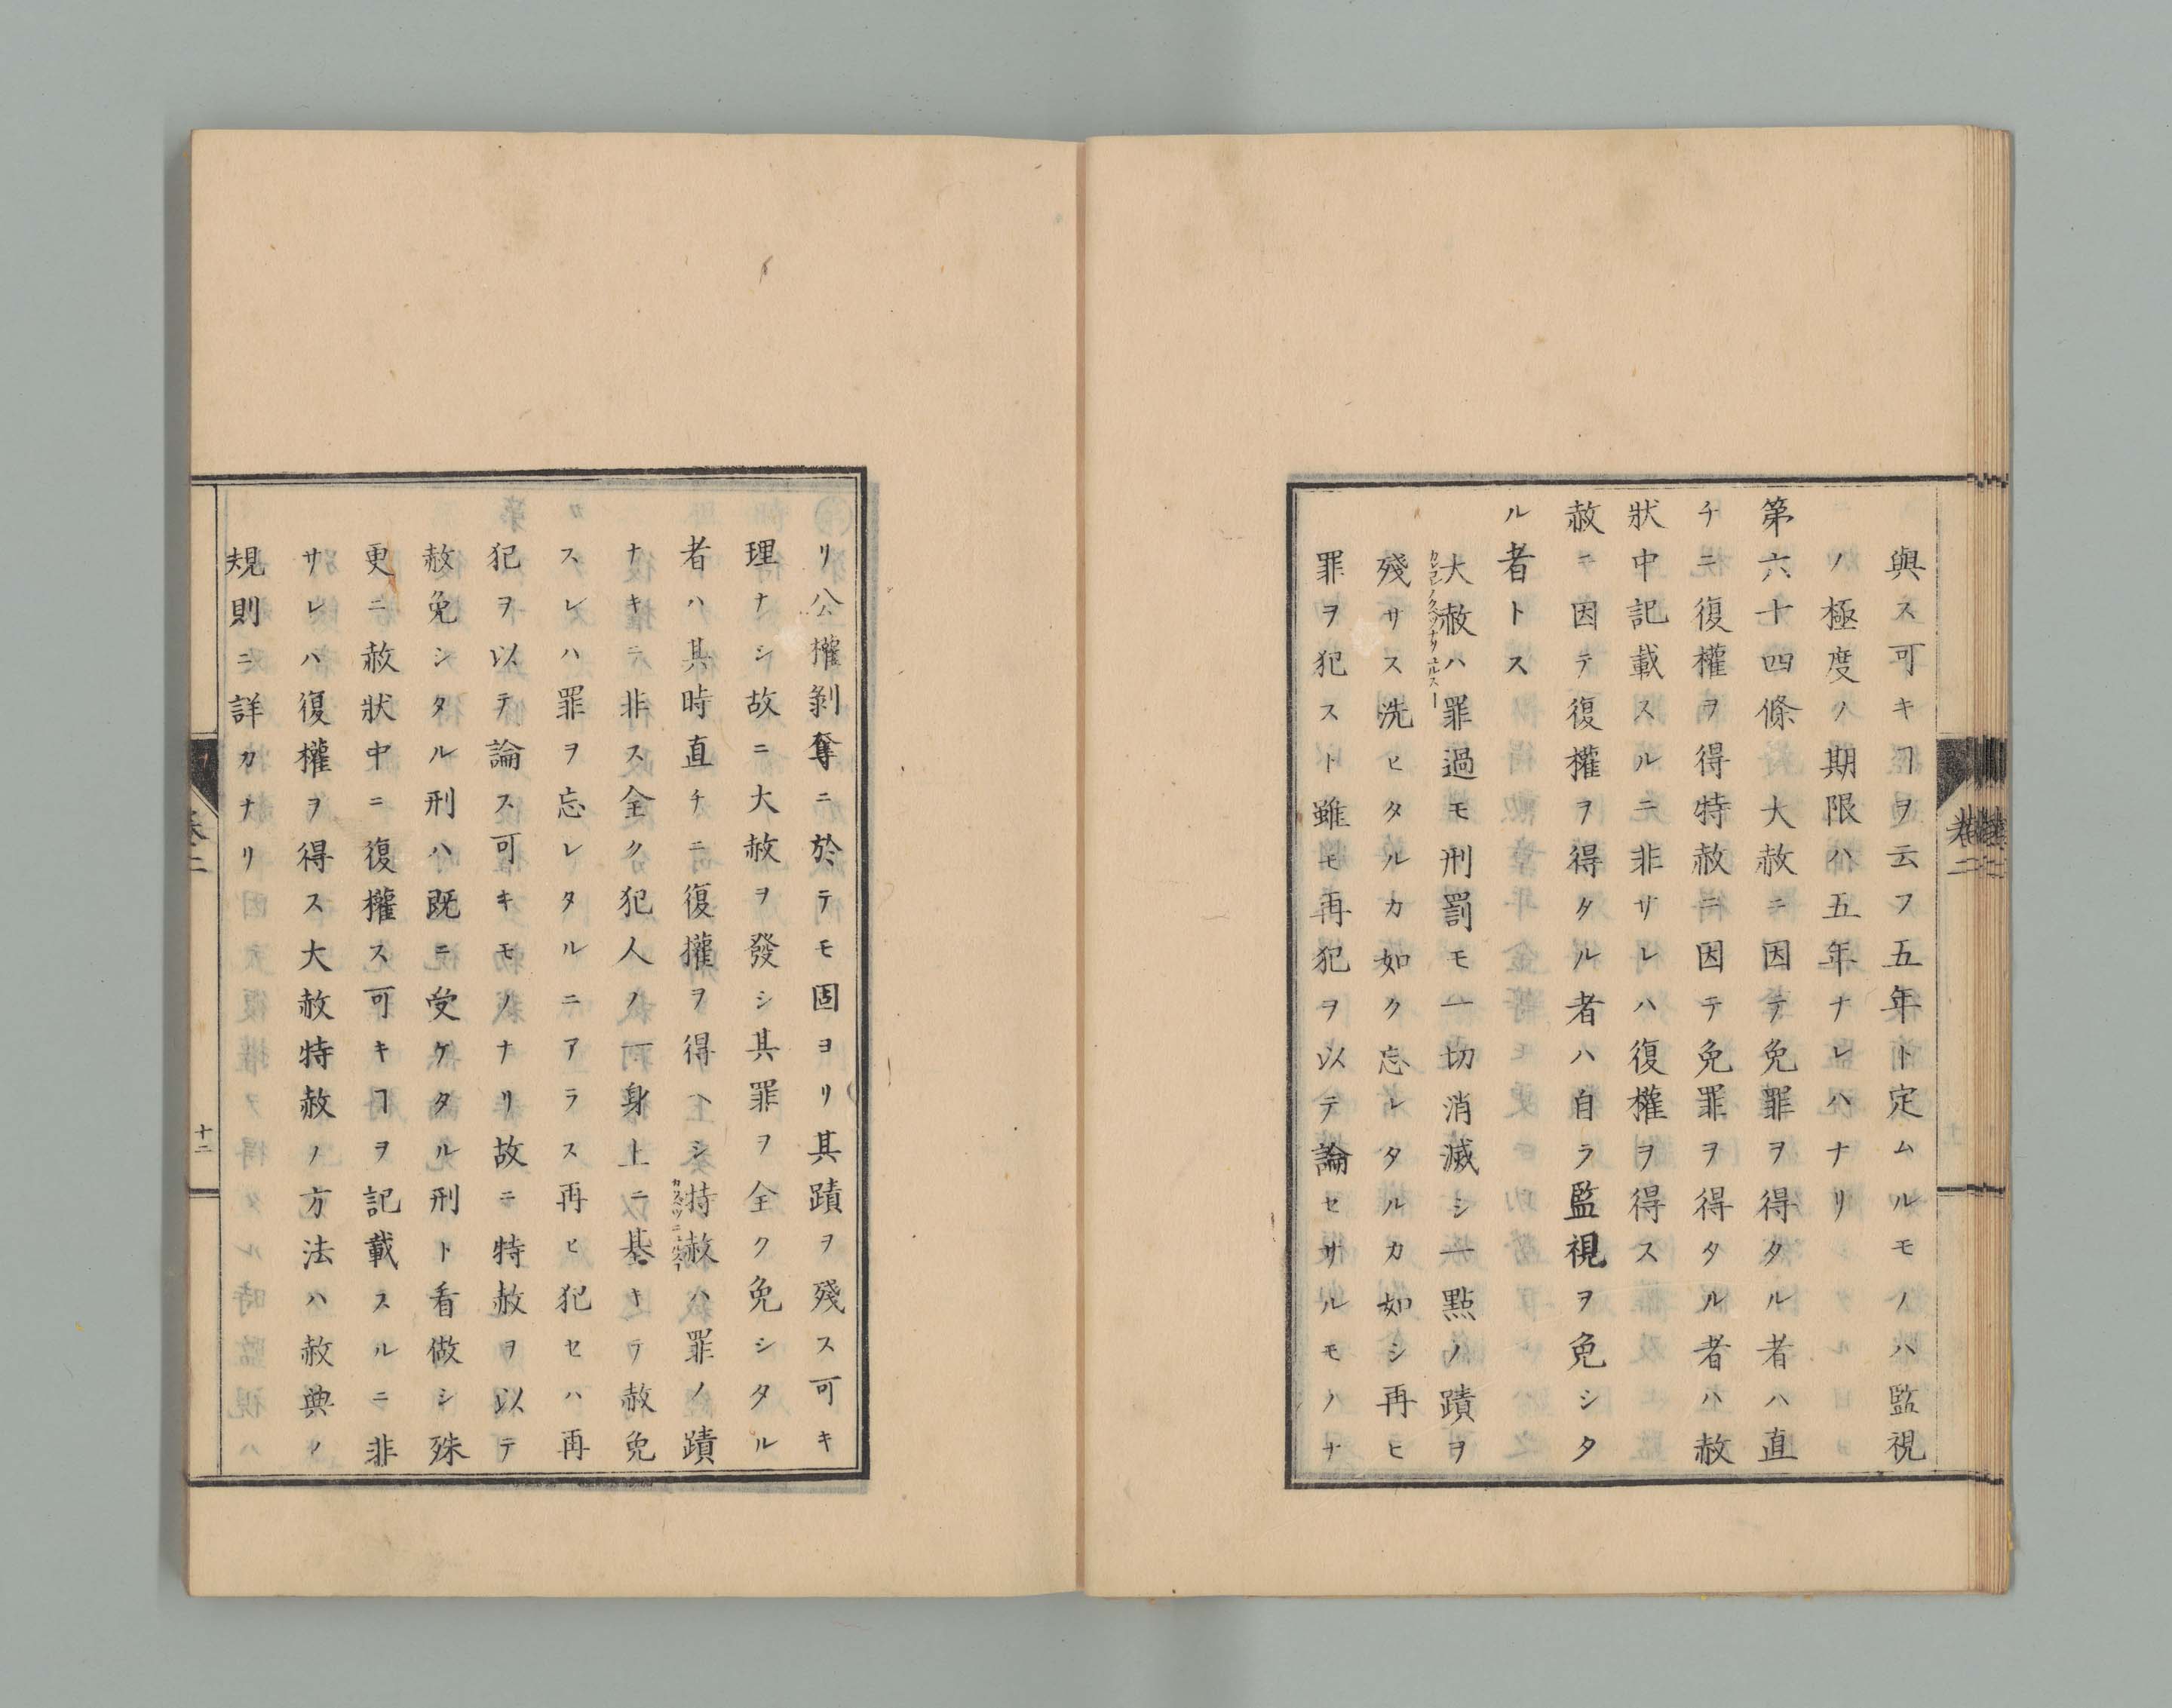 與ス可キヿヲ云フ五年ト定ムルモノハ監視
ノ極度ノ期限ハ五年ナレハナリ
第六十四條大赦ニ因テ免罪ヲ得タル者ハ直
チニ復權ヲ得特赦ニ因テ免罪ヲ得タル者ハ赦
狀中記載スルニ非サレハ復權ヲ得ス
赦ニ因テ復權ヲ得タル者ハ自ラ監視ヲ免シタ
ル者トス
大赦ハ罪過モ刑罰モ一切消滅シ一點ノ蹟ヲ
殘サス洗ヒタルカ如ク忘レタルカ如シ再ヒ
罪ヲ犯スト雖モ再犯ヲ以テ論セサルモノナ
卷二
リ公權剝奪ニ於テモ固ヨリ其蹟ヲ殘ス可キ
理ナシ故ニ大赦ヲ發シ其罪ヲ全ク免シタル
者ハ其時直チニ復權ヲ得ヘシ特赦ハ罪ノ蹟
ナキニ非ス全ク犯人ノ一身上ニ基キテ赦免
スレハ罪ヲ忘レタルニアラス再ヒ犯セハ再
犯ヲ以テ論ス可キモノナリ故ニ特赦ヲ以テ
赦免シタル刑ハ既ニ受ケタル刑ト看做シ殊
更ニ赦狀中ニ復權ス可キヿヲ記載スルニ非
サレハ復權ヲ得ス大赦特赦ノ方法ハ赦典ノ
規則ニ詳カナリ
卷二
十二